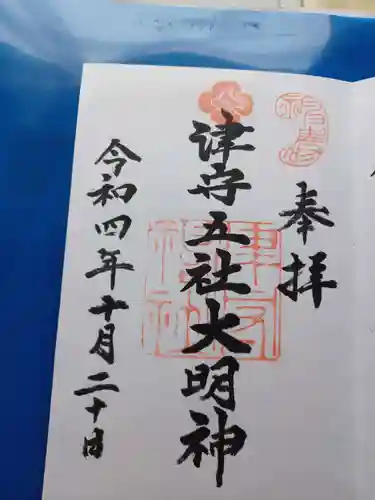 奉拝
津守五社大明神
令和四年十月二十日